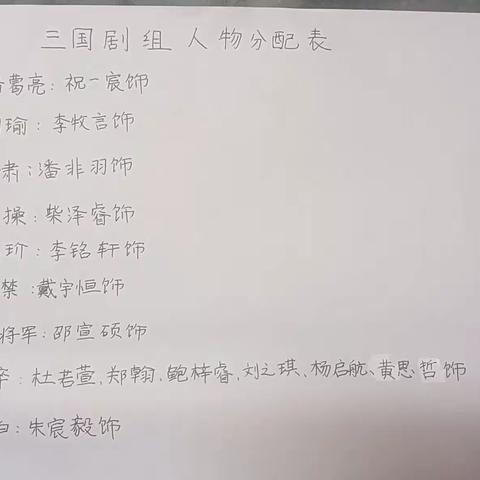 三国剧组人物分配表
曹亮：祝一宸饰
瑜：李牧言饰
肃：潘非羽饰
操：柴泽睿饰
玠：李铭轩饰
禁：戴宇恒饰
将军：邵宣硕饰
卒：杜若萱、郑翰、鲍梓睿、刘之琪、杨启航、黄思哲饰
白：朱宸毅饰